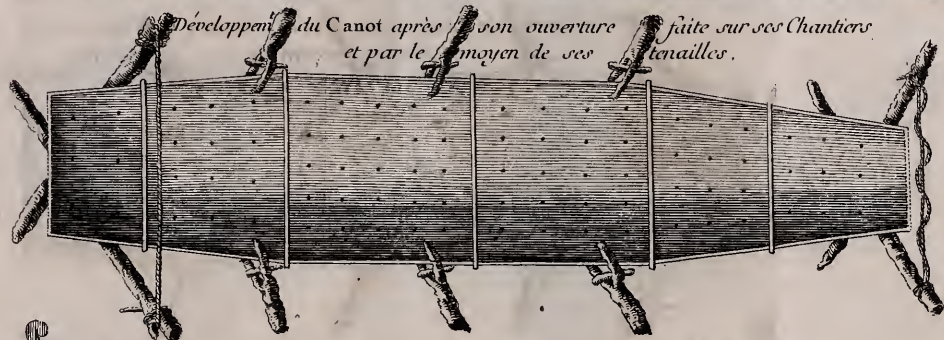 Développem du Canot après son ouverture faite sur ses Chantiers
et par le moyen de ses tenailles.